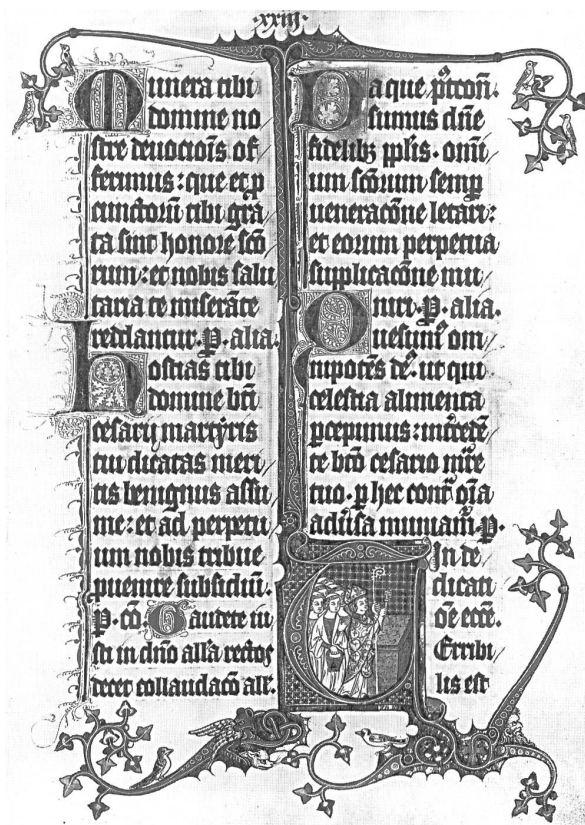 ·xxiij·
Munera tibi
domine no
stre deuocio͞is of
ferimus : que et ꝑ
cunctoru͞ tibi gra
ta sint honore sc͞o
rum : et nobis salu
taria te misera͞te
reddantur. P. alia.
Hostias tibi
domine bt͞i
cesarij martẏris
tui dicatas meri
tis benignus assu
me : et ad perpetu
um nobis tribue
ꝓuenire subsidiu͞.
P. co͞. Gaudete iu
sti in dn͞o all͞a rectos
decet collaudac͞o ale͞.
Da que
sumus dn͞e
fidelibꝫ pp͞lis · om͞i
um sc͞orum semꝑ
ueneraco͞ne letari :
et eorum perpetua
supplicaco͞ne mu
niri. P. alia.
Quesum͛ om
nipote͞s de͛. ut qui
celestia alimenta
ꝑcepimus : int͛cede͞
te bt͞o cesario mr͞e
tuo. ꝑ hec cont͛ o͞ia
adu͛sa muniam͛. P.
In de
dicati
o͞e ecc͞e.
Terribi
lis est